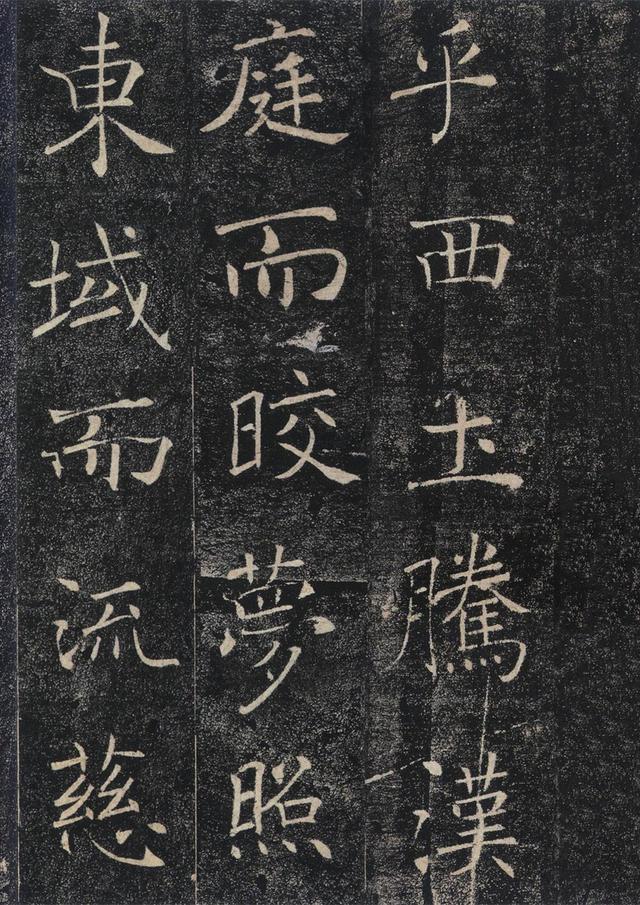 乎西土騰漢
庭而皎夢照
東域而流慈